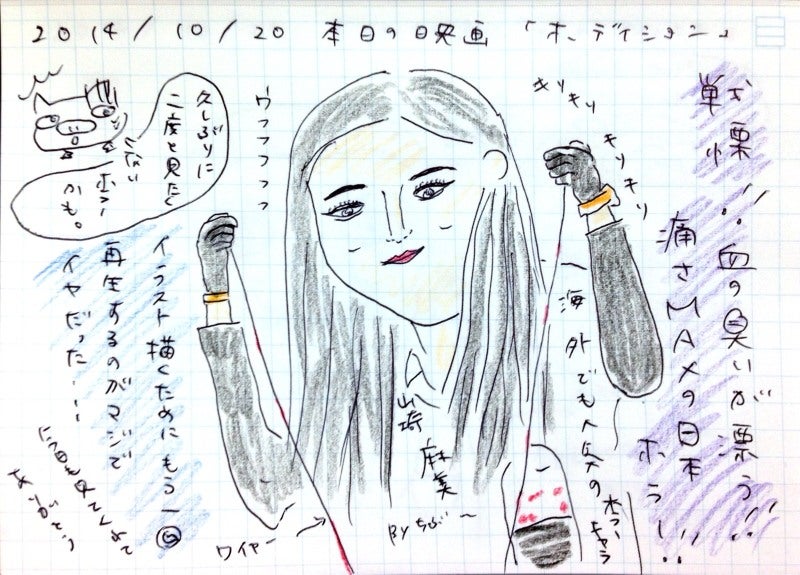 2014/10/20 本日の映画 「オーディション」
戦慄!!血の臭いが漂う!!!
痛さMAXの日本ホラー!!!
キリキリ
キリキリ
海外でも人気のホラーキャラ
ウフフフフッ
久しぶりに
二度と見たく
ない
ホラー
かも。
山崎
麻美
Byちぶー
イラスト描くためにもう一回
再生するのがマジで
イヤだった…
今日も見てくれて
ありがとう
ワイヤー